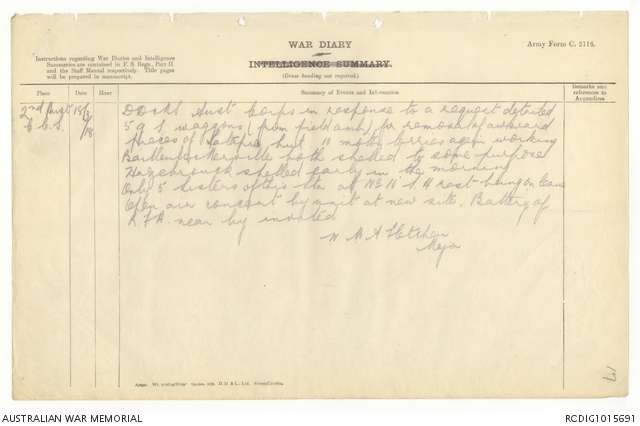 WAR DIARY
INTELLIGENCE SUMMARY.
(Erase heading not required.)
Army Form C. 2118.
Instructions regarding War Diaries and Intelligence
Summaries are contained in F. S. Regs., Part II.
and the Staff Manual respectively. Title pages
will be prepared in manuscript.
Place
Date
Hour
Summary of Events and Information
Remarks and
references to
Appendices
2nd Aust
C.C.S.
18/3/18
Aust Corps in response to a request detailed
5 G S waggons (from field amb) for removal of awkward
pieces of hut 11 motor lorries again working
both shelled to some purpose
Hazebrouck shelled early in the morning
Only 5 Sisters of this at No 10 rest being on leave
Open air concert by unit at new site. Battery of
R F A. near by invited
W A Fletcher
Major
17
AUSTRALIAN WAR MEMORIAL
RCDIG1015691